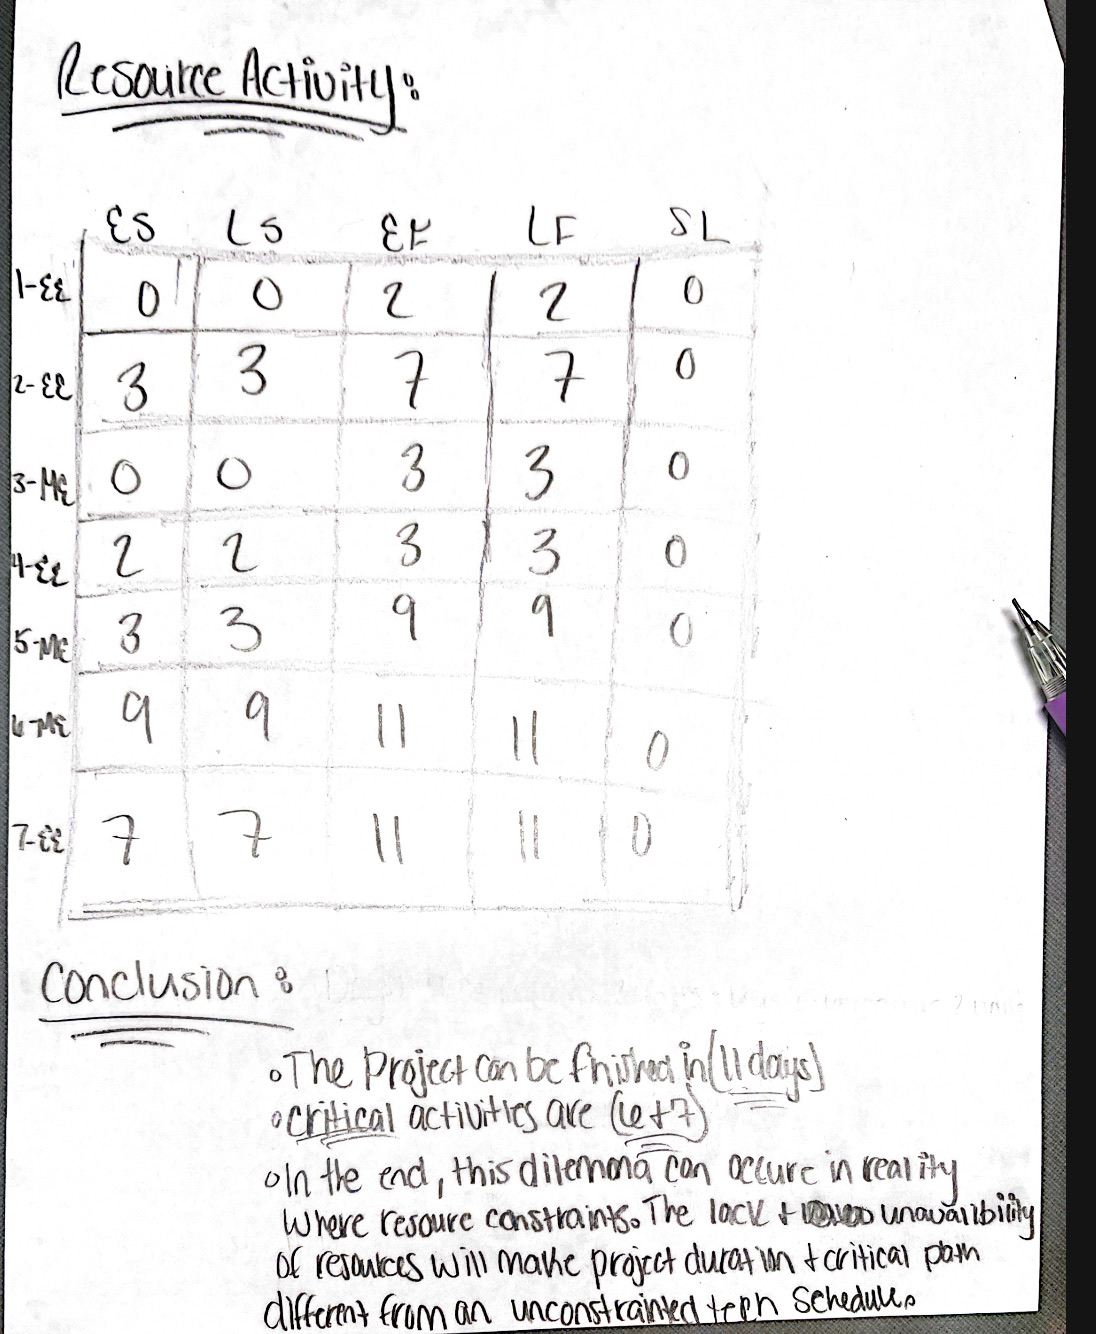 Resource Activity:
ES LS EF LF SL
1-EE 0 0 2 2 0
2-EE 3 3 7 7 0
3-ME 0 0 3 3 0
4-EE 2 2 3 3 0
5-ME 3 3 9 9 0
6-ME 9 9 11 11 0
7-EE 7 7 11 11 0
Conclusion:
The Project can be finished in (11 days)
critical activities are (6+7)
In the end, this dilemma can occure in reality
Where resoure constraints. The lack + unavailibility
of resources will make project duration + critical path
different from an unconstrainted schedule.